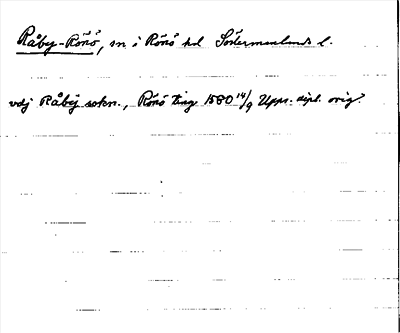 Råby-Rönö, sn i Rönö hd Södermanlands l.
vdj Råbÿ sokn., Rönö ting 1580 14/9 Upps. dipl. orig.